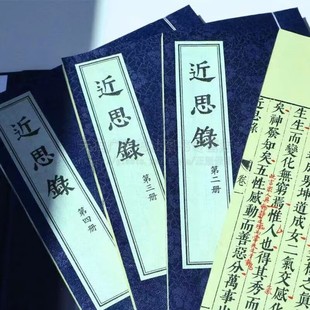 近思錄
第四册
近思錄
第三册
近思錄
第二册
坤道成女二氣交感化
生生而變化無窮焉惟人也得其秀而
矣神發知矣五性感動而善惡分萬事出
近思錄
卷一